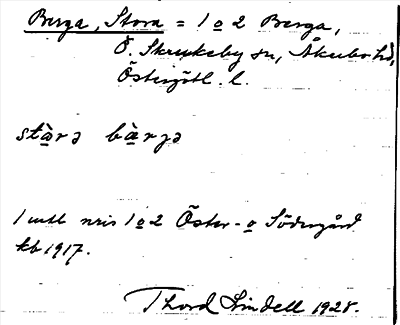 Berga, Stora = 1 o 2 Berga,
Ö. Skrukeby sn, Åkerbo hd,
Östergötl. l.
stòra bærja
1 mtl nris 1 o 2 Öster- o Södergård
kb 1917.
Thord Lindell 1928.